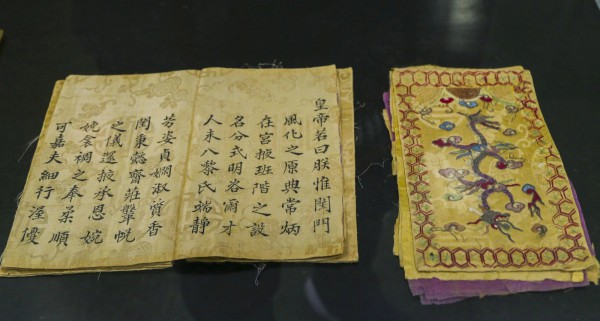 皇帝若曰朕惟閨門
風化之原典常炳
在宮掖班階之設
名分式明咨爾才
人未八黎氏端静
芳姿貞嫻淑質香
閨秉懿齋莊鞶帨
之儀選掖承恩婉
娩衾裯之奉柔順
可嘉夫細行優